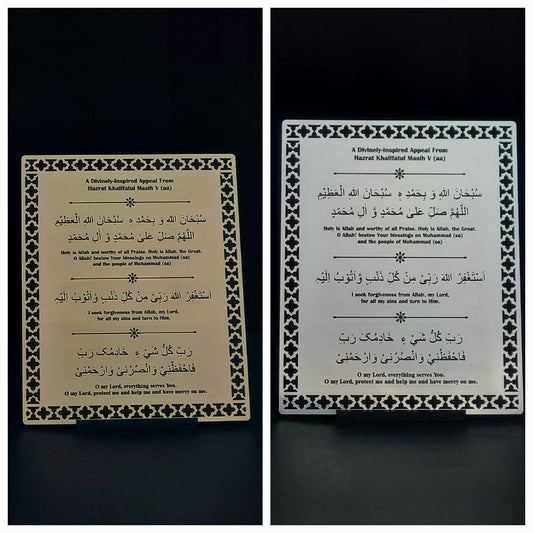 A Divinely-Inspired Appeal From
Hazrat Khalifatul Masih V (aa)
سُبْحَانَ اللهِ وَ بِحَمْدِهٖ سُبْحَانَ اللهِ الْعَظِيْمِ
اَللّٰهُمَّ صَلِّ عَلٰى مُحَمَّدٍ وَّ اٰلِ مُحَمَّدٍ
Holy is Allah and worthy of all Praise. Holy is Allah, the Great.
O Allah! bestow Your blessings on Muhammad (sa)
and the people of Muhammad (sa)
اَسْتَغْفِرُ اللهَ رَبِّيْ مِنْ كُلِّ ذَنْبٍ وَّاَتُوْبُ اِلَيْهِ
I seek forgiveness from Allah, my Lord,
for all my sins and turn to Him.
رَبِّ كُلُّ شَيْءٍ خَادِمُكَ رَبِّ
فَاحْفَظْنِيْ وَانْصُرْنِيْ وَارْحَمْنِيْ
O my Lord, everything serves You.
O my Lord, protect me and help me and have mercy on me.
A Divinely-Inspired Appeal From
Hazrat Khalifatul Masih V (aa)
سُبْحَانَ اللهِ وَ بِحَمْدِهٖ سُبْحَانَ اللهِ الْعَظِيْمِ
اَللّٰهُمَّ صَلِّ عَلٰى مُحَمَّدٍ وَّ اٰلِ مُحَمَّدٍ
Holy is Allah and worthy of all Praise. Holy is Allah, the Great.
O Allah! bestow Your blessings on Muhammad (sa)
and the people of Muhammad (sa)
اَسْتَغْفِرُ اللهَ رَبِّيْ مِنْ كُلِّ ذَنْبٍ وَّاَتُوْبُ اِلَيْهِ
I seek forgiveness from Allah, my Lord,
for all my sins and turn to Him.
رَبِّ كُلُّ شَيْءٍ خَادِمُكَ رَبِّ
فَاحْفَظْنِيْ وَانْصُرْنِيْ وَارْحَمْنِيْ
O my Lord, everything serves You.
O my Lord, protect me and help me and have mercy on me.